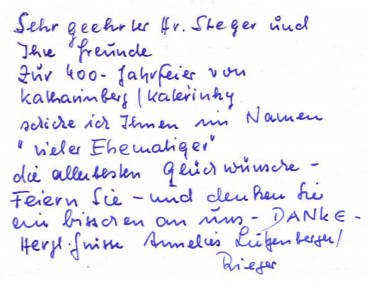 Sehr geehrter Hr. Steger und
Ihre Freunde
Zur 400-Jahrfeier von
Katharinberg / Kateřinky
schicke ich Ihnen im Namen
"vieler Ehemaliger"
die allerbesten Glückwünsche -
Feiern Sie - und denken Sie
ein bisschen an uns - DANKE -
Herzl. Grüsse Annelies /
Rieger